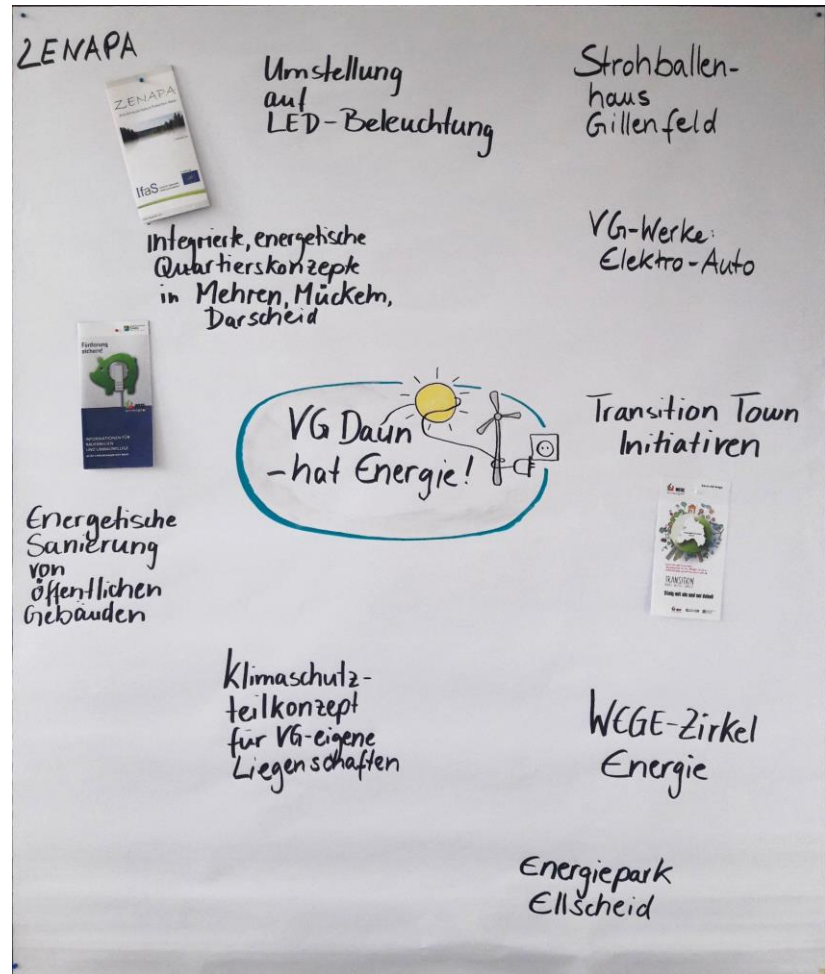 ZENAPA
ZENAPA
IfaS
Umstellung
auf
LED-Beleuchtung
Strohballen-
haus
Gillenfeld
Integrierte, energetische
Quartierskonzepte
in Mehren, Mückeln,
Darscheid
VG-Werke:
Elektro-Auto
Förderung
sichern!
INFORMATIONEN FÜR
VG Daun
-hat Energie!
Transition Town
Initiativen
TRANSITION
Energetische
Sanierung
von
öffentlichen
Gebäuden
Klimaschutz-
teilkonzept
für VG-eigene
Liegenschaften
WEGE-Zirkel
Energie
Energiepark
Ellscheid